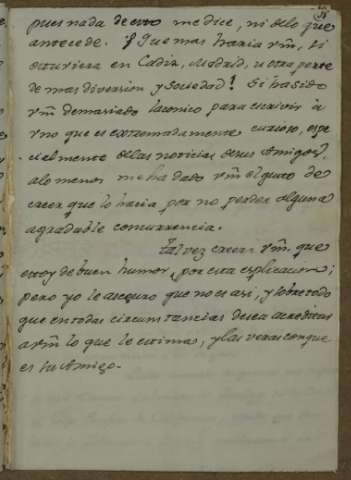 pues nada de esto me dice, ni de lo que
antecede. ¿Que mas haria vm̃, si
estuviera en Cadiz, Madrid, u otra parte
de mas diversion y sociedad! Si ha sido
vm̃ demasiado laconico para escrivir à
uno que es extremadamente curioso, espe
cialmente de las noticias de sus Amigos,
alo menos me ha dado vm̃ el gusto de
creer que lo hacia por no perder alguna
agradable concurrencia.
Tal vez creera vm̃ que
estoy de buen humor, por esta esplicacion;
pero yo le aseguro que no es asi, y sobre todo
que en todas circunstancias desea acreditar
a vm̃ lo que le estima, y las veras con que
es su Amigo.